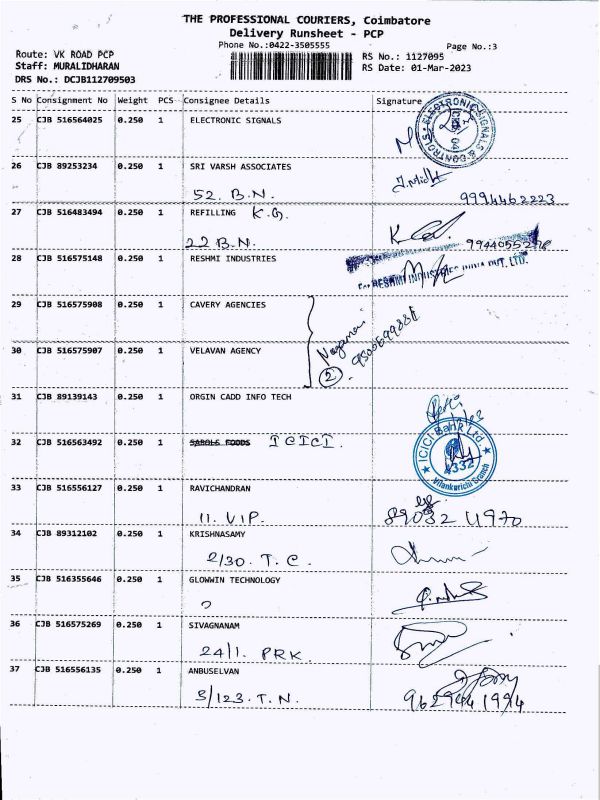 THE PROFESSIONAL COURIERS, Coimbatore
Delivery Runsheet - PCP
Phone No.:0422-3505555
Page No.:3
Route: VK ROAD PCP
RS No.: 1127095
Staff: MURALIDHARAN
RS Date: 01-Mar-2023
DRS No.: DCJB112709503
S No Consignment No Weight PCS Consignee Details Signature
25 CJB 516564025 0.250 1 ELECTRONIC SIGNALS
ELECTRONIC SIGNALS & CONTROLS
26 CJB 89253234 0.250 1 SRI VARSH ASSOCIATES
52. B.N. 9994462223
27 CJB 516483494 0.250 1 REFILLING K.G.
22 B.N.
28 CJB 516575148 0.250 1 RESHMI INDUSTRIES
For RESHMI INDUSTRIES INDIA PVT. LTD.
29 CJB 516575908 0.250 1 CAVERY AGENCIES
30 CJB 516575907 0.250 1 VELAVAN AGENCY
2
31 CJB 89139143 0.250 1 ORGIN CADD INFO TECH
32 CJB 516563492 0.250 1 ICICI
ICICI Bank Ltd.
4332
Vilankurichi Branch
33 CJB 516556127 0.250 1 RAVICHANDRAN
11. VIP. 89032 U970
34 CJB 89312102 0.250 1 KRISHNASAMY
2/30. T. C.
35 CJB 516355646 0.250 1 GLOWWIN TECHNOLOGY
36 CJB 516575269 0.250 1 SIVAGNANAM
24/1. PRK.
37 CJB 516556135 0.250 1 ANBUSELVAN
3/123. T. N. 9629441994